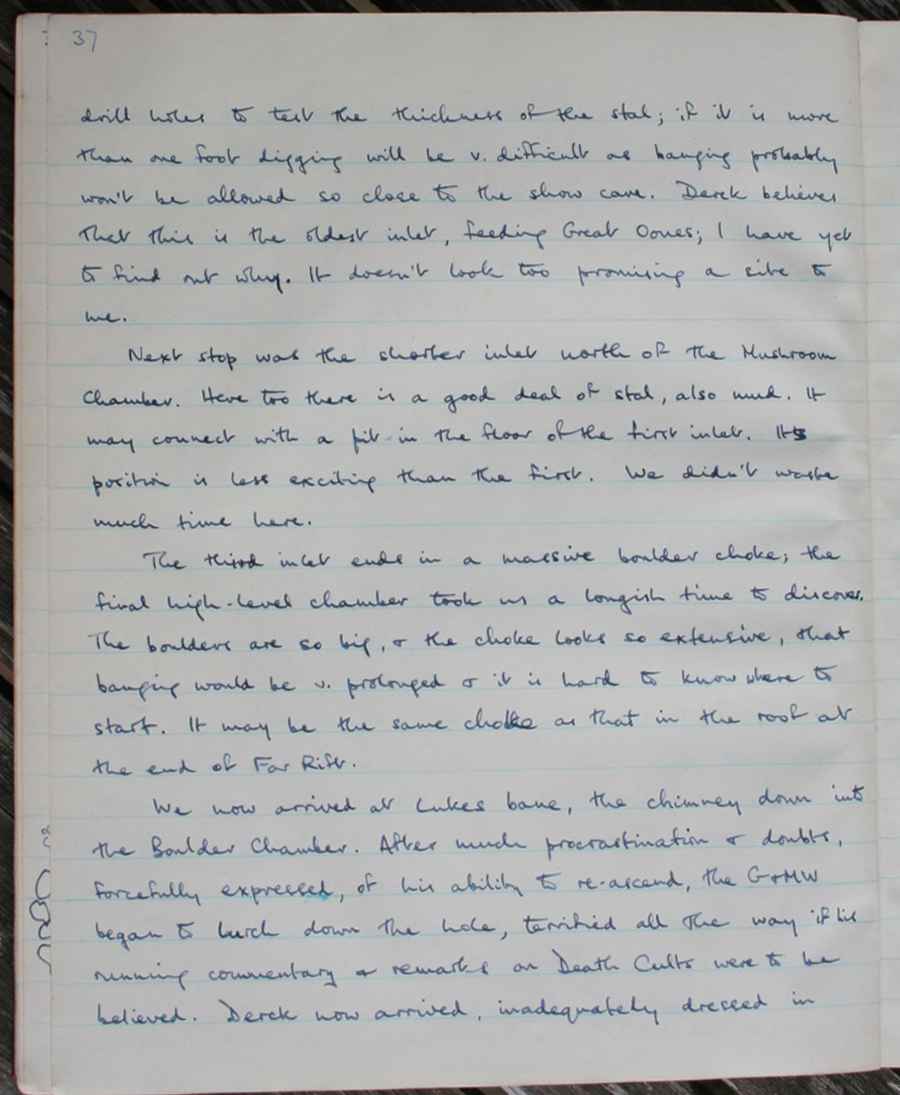 37
drill holes to test the thickness of the stal; if it is more
than one foot digging will be v. difficult as banging probably
won't be allowed so close to the show cave. Derek believes
that this is the oldest inlet, feeding Great Oones; I have yet
to find out why. It doesn't look too promising a site to
me.
Next stop was the shorter inlet north of the Mushroom
Chamber. Here too there is a good deal of stal, also mud. It
may connect with a pit in the floor of the first inlet. Its
position is less exciting than the first. We didn't waste
much time here.
The third inlet ends in a massive boulder choke; the
final high-level chamber took us a longish time to discover.
The boulders are so big, & the choke looks so extensive, that
banging would be v. prolonged & it is hard to know where to
start. It may be the same choke as that in the roof at
the end of Far Rift.
We now arrived at Lukes bane, the chimney down into
the Boulder Chamber. After much procrastination & doubts,
forcefully expressed, of his ability to re-ascend, the G+MW
began to lurch down the hole, terrified all the way if his
running commentary & remarks on Death Cults were to be
believed. Derek now arrived, inadequately dressed in